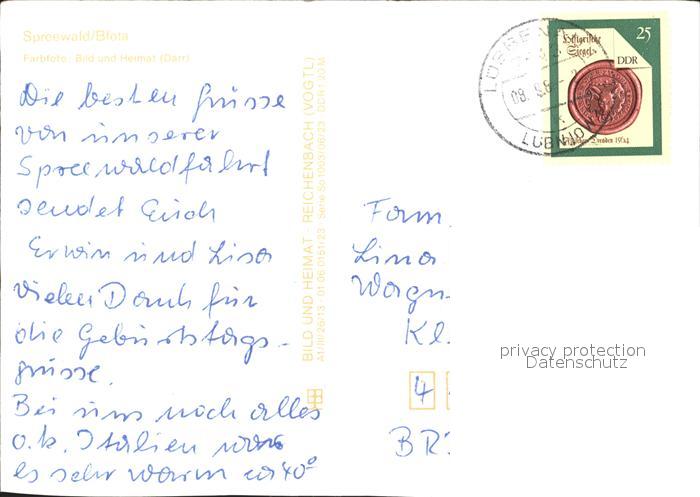 Spreewald/Blota
Farbfoto: Bild und Heimat (Darr)
Die besten Grüsse
von unserer
Spreewaldfahrt
sendet Euch
Erwin und Lisa
Vielen Dank für
die Geburtstags-
grüsse.
Bei uns noch alles
o.k. Italien war
es sehr warm ca 40°
BILD UND HEIMAT · REICHENBACH (VOGTL)
A1/III/26/13 01 06 0151/23
Historische
Siegel
25
DDR
LÜBBENAU
LUBNJOW
Fam.
Lina
Wagn
Kl.
4
BR
privacy protection
Datenschutz